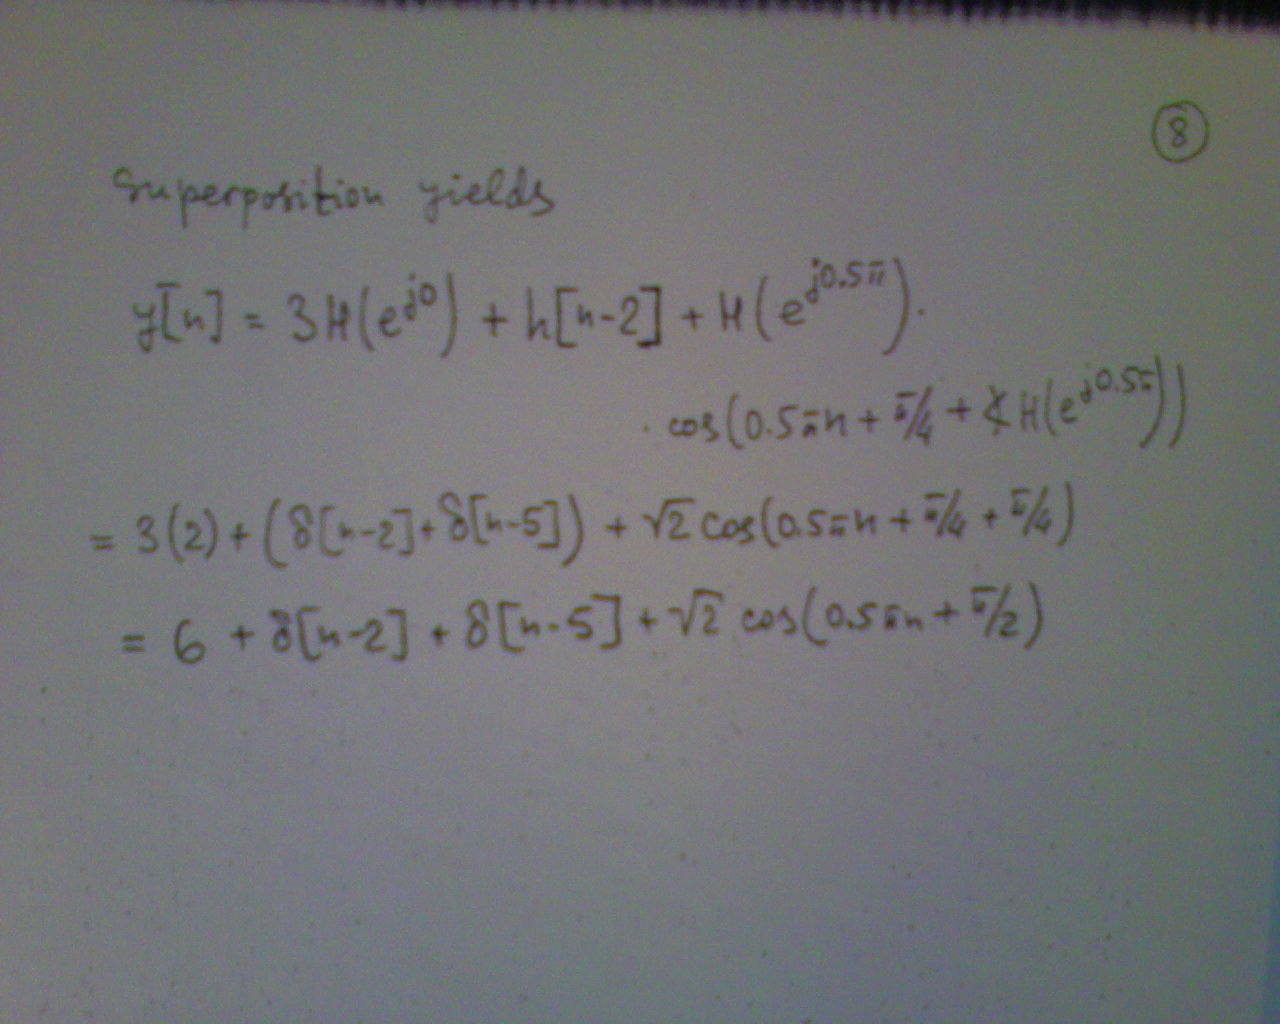 8
Superposition yields
y[n] = 3H(e^{j0}) + h[n-2] + H(e^{j0.5π}) ·
· cos(0.5πn + π/4 + ∢H(e^{j0.5π}))
= 3(2) + (δ[n-2] + δ[n-5]) + √2 cos(0.5πn + π/4 + π/4)
= 6 + δ[n-2] + δ[n-5] + √2 cos(0.5πn + π/2)